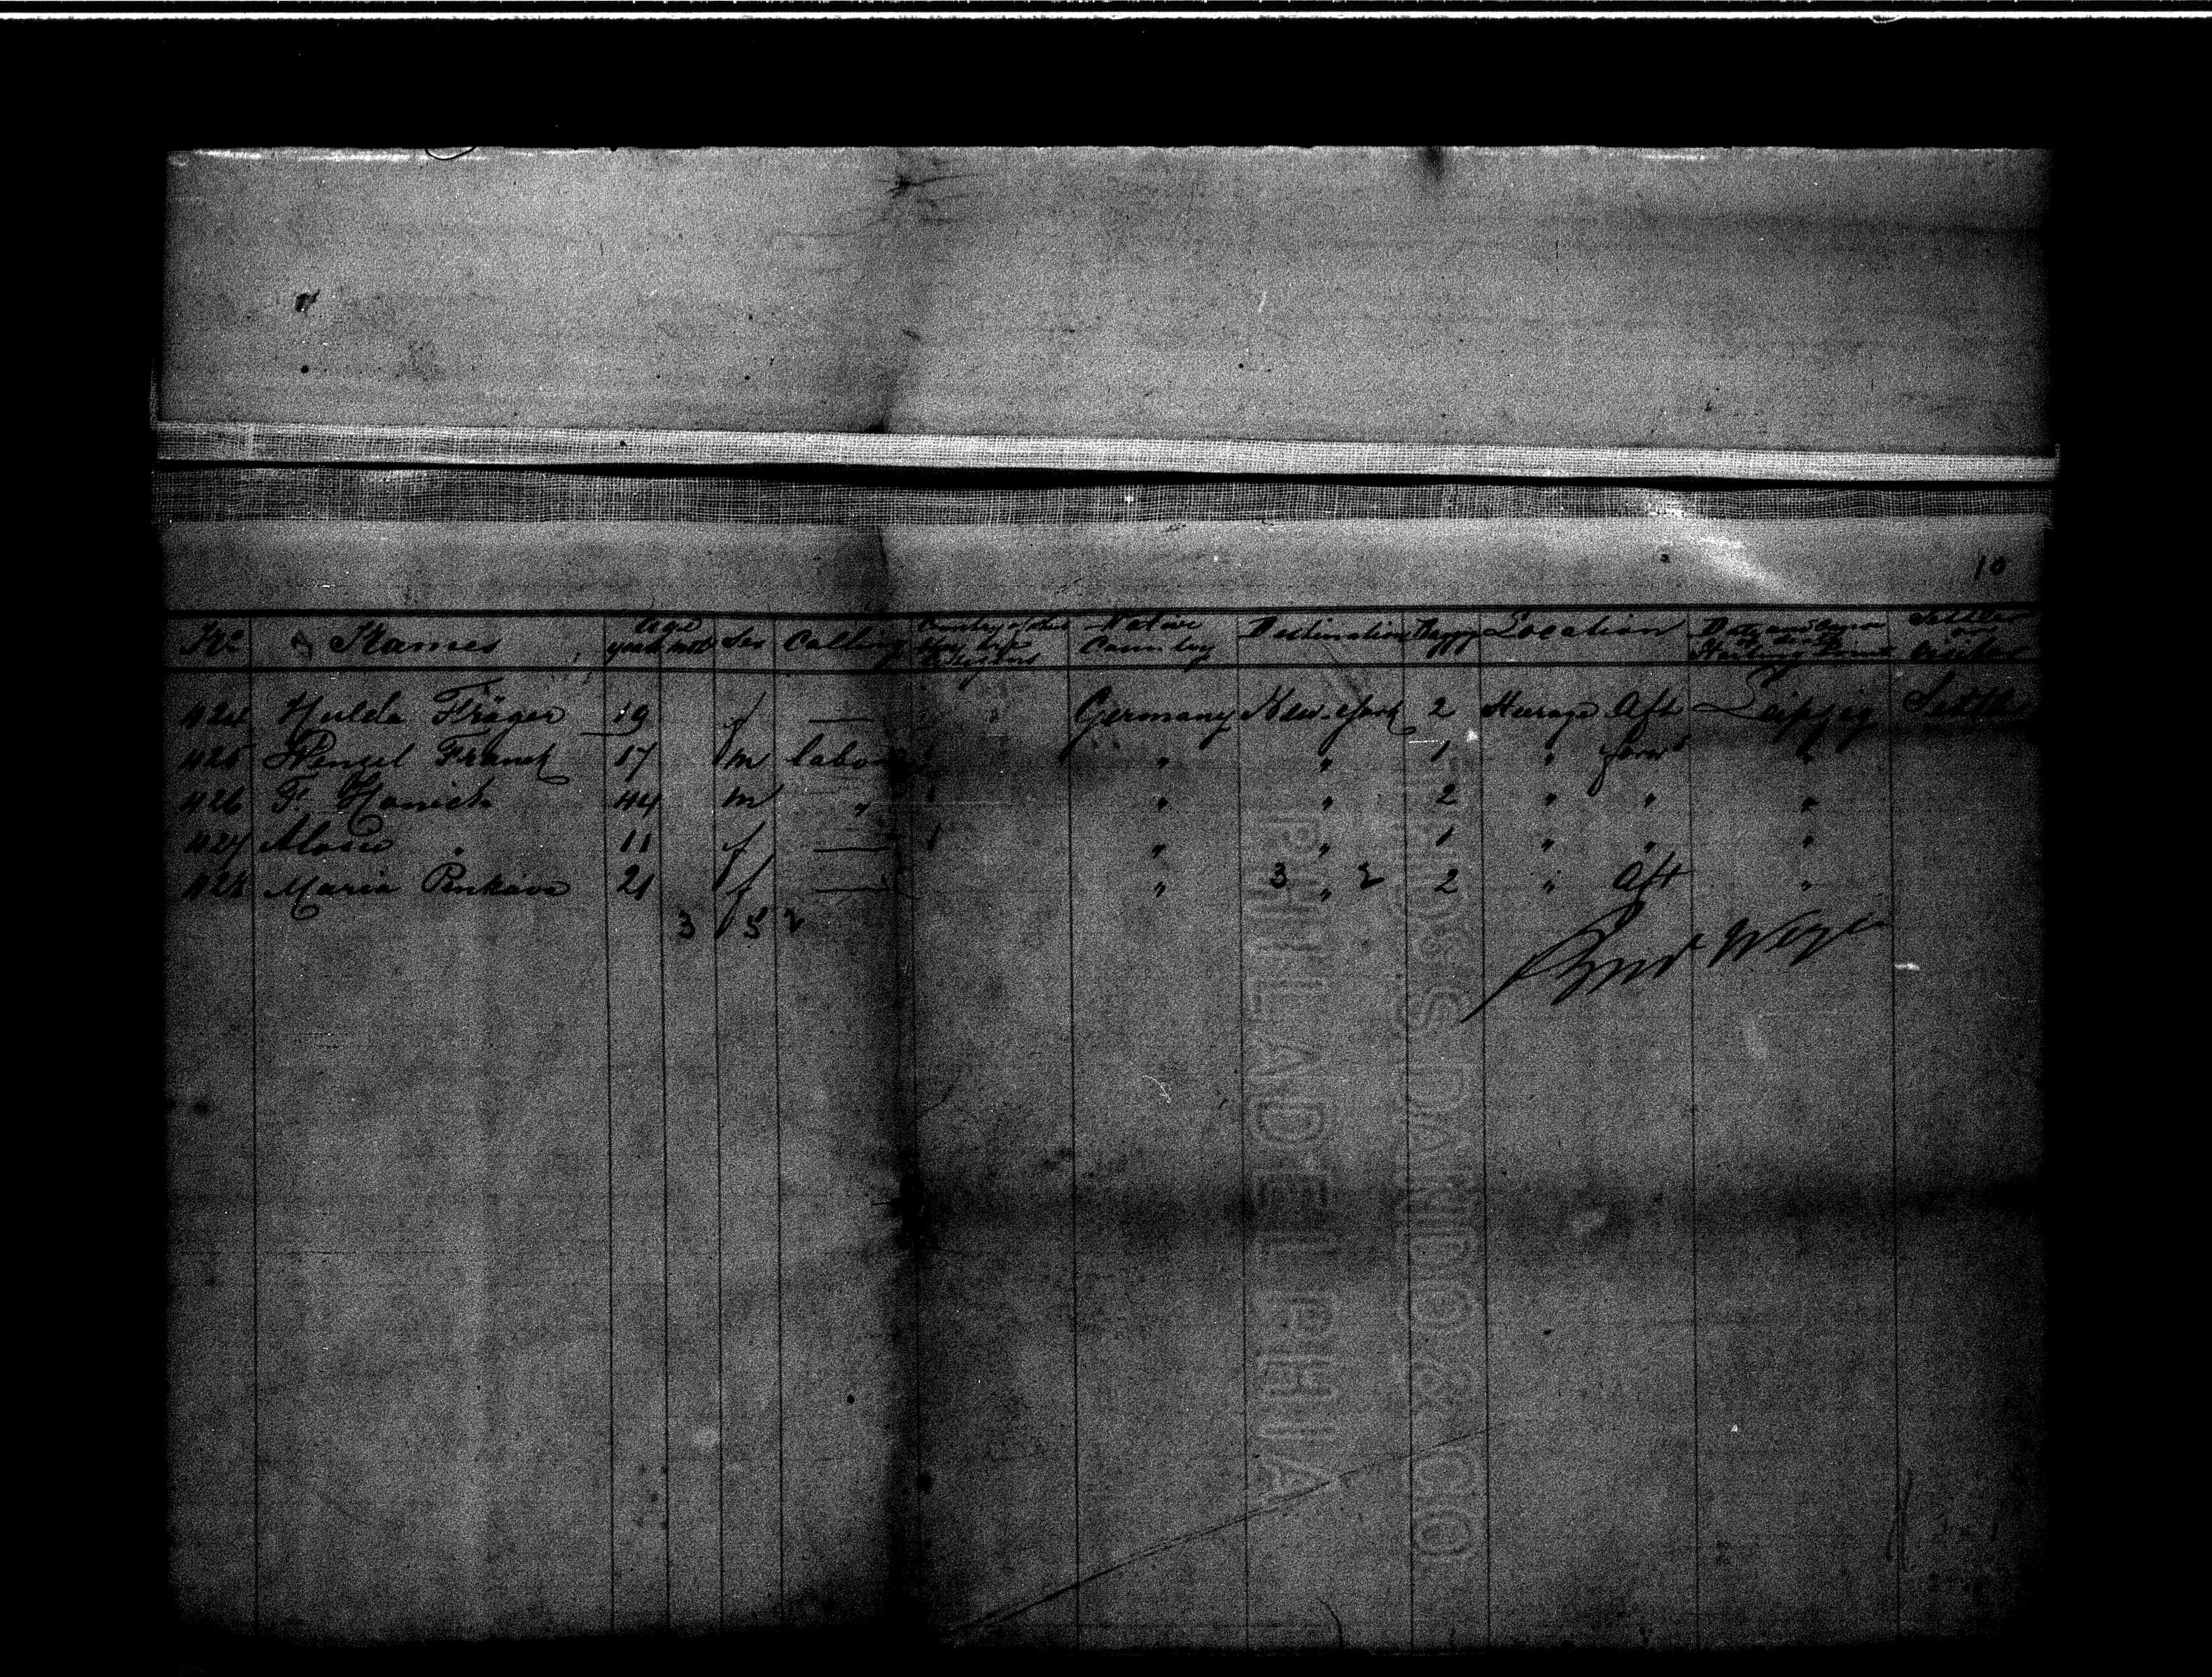 10
No Names Age years mth Sex Calling Native Country Destination Bagg Location Settler or
424 Hulda Fräger 19 f — Germany New-York 2 Aft Leipzig Settler
425 Wenzel Franek 17 m labor " " 1 " forw "
426 F. Hanich 44 m " 1 " " 2 " " "
427 " 11 f — 1 " " 1 " " "
428 Maria Penkava 21 f — " 3 " 2 2 " Aft "
3 5 2
THOS S DANDO & CO
PHILADELPHIA